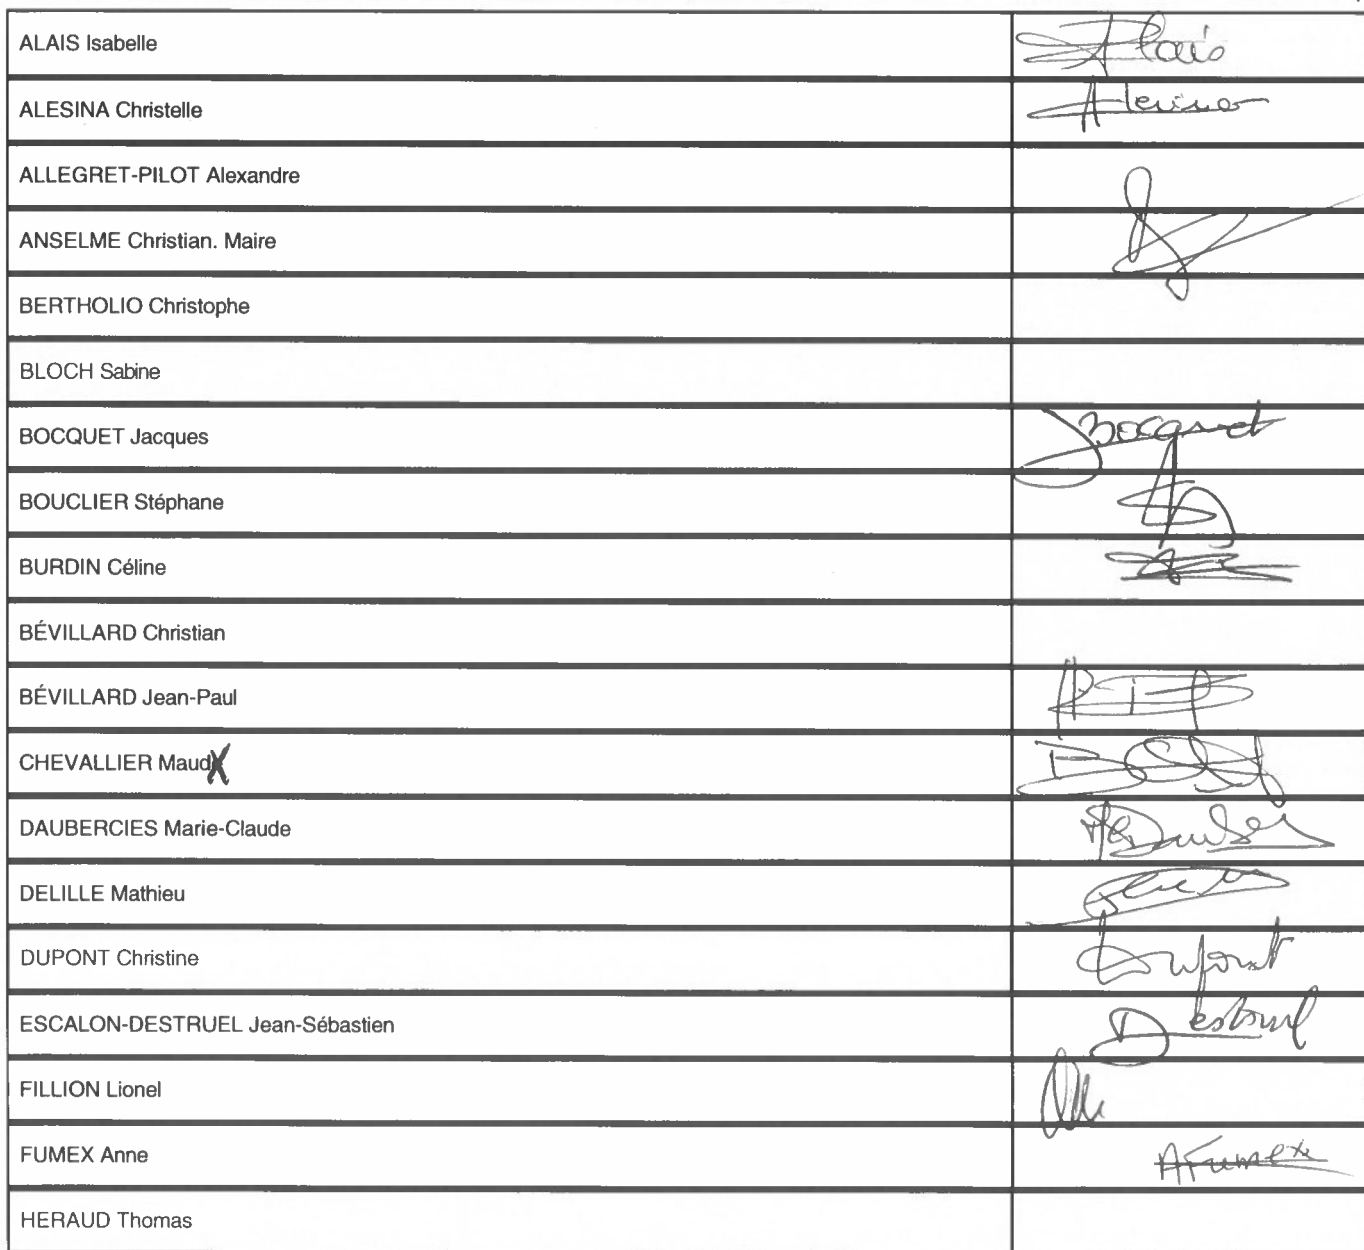 ALAIS Isabelle Alais
ALESINA Christelle Alesina
ALLEGRET-PILOT Alexandre
ANSELME Christian. Maire
BERTHOLIO Christophe
BLOCH Sabine
BOCQUET Jacques JBocquet
BOUCLIER Stéphane
BURDIN Céline
BÉVILLARD Christian
BÉVILLARD Jean-Paul
CHEVALLIER Maud
DAUBERCIES Marie-Claude
DELILLE Mathieu
DUPONT Christine Dupont
ESCALON-DESTRUEL Jean-Sébastien Destruel
FILLION Lionel
FUMEX Anne AFumex
HERAUD Thomas